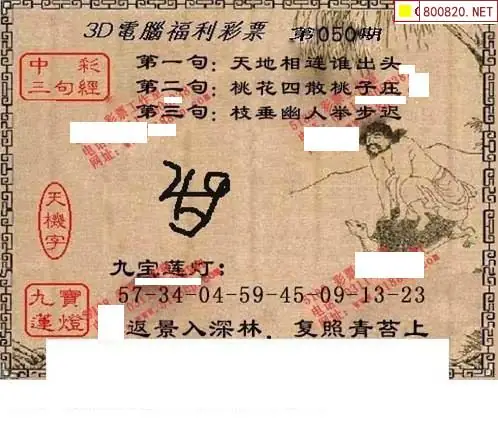 800820.NET
3D電腦福利彩票 第050期
中彩
三句經
第一句：天地相连谁出头
第二句：桃花四散桃子庄
第三句：枝垂幽人举步迟
天機字
九宝莲灯：
九寶蓮燈
57-34-04-59-45-09-13-23
返景入深林．复照青苔上